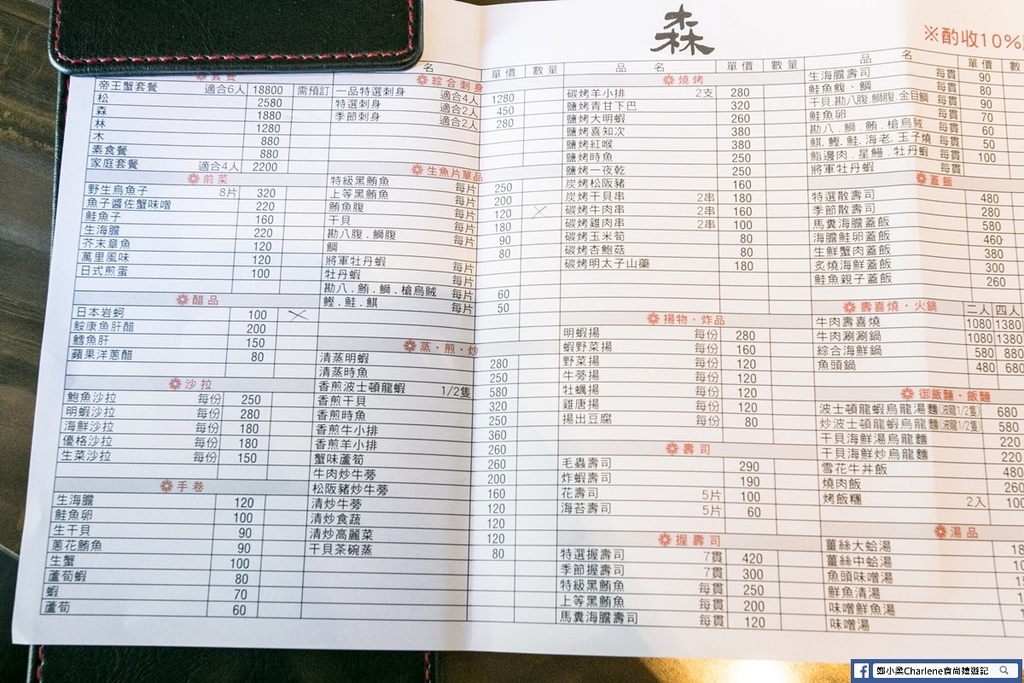 森
※酌收10%
套餐
帝王蟹套餐 適合6人 18800 需預訂
松 2580
森 1880
林 1280
木 880
素食餐 880
家庭套餐 適合4人 2200
前菜
野生烏魚子 8片 320
魚子醬佐蟹味噌 220
鮭魚子 160
生海膽 220
芥末章魚 120
萬里風味 120
日式煎蛋 100
醋品
日本岩蚵 100
鮟康魚肝醋 200
鱈魚肝 150
蘋果洋蔥醋 80
沙拉
鮑魚沙拉 每份 250
明蝦沙拉 每份 280
海鮮沙拉 每份 180
優格沙拉 每份 180
生菜沙拉 每份 150
手卷
生海膽 120
鮭魚卵 100
生干貝 90
蔥花鮪魚 90
生蟹 100
蘆筍蝦 80
蝦 70
蘆筍 60
名 單價 數量
綜合刺身
一品特選刺身 適合4人 1280
特選刺身 適合2人 450
季節刺身 適合2人 280
生魚片單品
特級黑鮪魚 每片 250
上等黑鮪魚 每片 200
鮪魚腹 每片 120
干貝 每片 180
勘八腹.鰤腹 每片 90
鯛 80
將軍牡丹蝦
牡丹蝦 每片
勘八.鮪.鰤.槍烏賊 每片 60
鰹.鮭.鯕 每片 50
蒸.煎.炒
清蒸明蝦 280
清蒸時魚 250
香煎波士頓龍蝦 1/2隻 580
香煎干貝 320
香煎時魚 250
香煎牛小排 360
香煎羊小排 260
蟹味蘆筍 260
牛肉炒牛蒡 200
松阪豬炒牛蒡 160
清炒牛蒡 120
清炒食蔬 120
清炒高麗菜 120
干貝茶碗蒸 80
品名 單價 數量
燒烤
碳烤羊小排 2支 280
鹽烤青甘下巴 320
鹽烤大明蝦 260
鹽烤喜知次 380
鹽烤紅喉 380
鹽烤時魚 250
鹽烤一夜乾 250
炭烤松阪豬 160
炭烤干貝串 2串 180
碳烤牛肉串 2串 160
碳烤雞肉串 2串 100
碳烤玉米筍 80
碳烤杏鮑菇 80
碳烤明太子山藥 180
揚物、炸品
明蝦揚 每份 280
蝦野菜揚 每份 160
野菜揚 每份 120
牛蒡揚 每份 120
牡蠣揚 每份 120
雞唐揚 每份 120
揚出豆腐 每份 80
壽司
毛蟲壽司 290
炸蝦壽司 190
花壽司 5片 100
海苔壽司 5片 60
握壽司
特選握壽司 7貫 420
季節握壽司 7貫 300
特級黑鮪魚 每貫 250
上等黑鮪魚 每貫 200
馬糞海膽壽司 每貫 120
品名 單價
生海膽壽司 每貫 90
鮭魚腹、鯛 每貫 80
干貝.勘八腹.鰤腹.金目鯛 每貫 90
鮭魚卵 每貫 70
勘八.鰤.鮪.槍烏賊 每貫 60
鯕.鰹.鮭.海老.玉子燒 每貫 50
鮨邊肉.星鰻.牡丹蝦 每貫 100
將軍牡丹蝦 每貫
蓋飯
特選散壽司 480
季節散壽司 280
馬糞海膽蓋飯 580
海膽鮭卵蓋飯 460
生鮮蟹肉蓋飯 380
炙燒海鮮蓋飯 300
鮭魚親子蓋飯 260
壽喜燒・火鍋 二人 四人
牛肉壽喜燒 1080 1380
牛肉涮涮鍋 1080 1380
綜合海鮮鍋 580 880
魚頭鍋 480 680
御飯麵・飯麵
波士頓龍蝦烏龍湯麵(波龍1/2隻) 680
炒波士頓龍蝦烏龍麵(波龍1/2隻) 580
干貝海鮮湯烏龍麵 220
干貝海鮮炒烏龍麵 220
雪花牛丼飯 480
燒肉飯 260
烤飯糰 2入 100
湯品
薑絲大蛤湯
薑絲中蛤湯
魚頭味噌湯
鮮魚清湯
味噌鮮魚湯
味噌湯
鄭小柔Charlene食尚嬉遊記